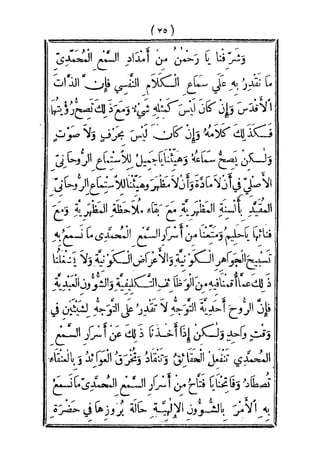 (٢٥)
وَشَرِّفْنَا يَا رَحْمٰنُ مِنْ أَمْدَادِ السَّمْعِ الْمُحَمَّدِيِّ
مَا نَقْدِرُ بِهِ عَلَى سَمَاعِ الْكَلَامِ النَّفْسِيِّ فَإِنَّ الذَّاتَ
الْأَقْدَسَ وَإِنْ كَانَ لَيْسَ كَمِثْلِهِ شَيْءٌ وَمَعَ ذٰلِكَ تَصِحُّ رُؤْيَتُهَا
فَكَذٰلِكَ كَلَامُهُ وَإِنْ كَانَ لَيْسَ بِحَرْفٍ وَلَا صَوْتٍ
وَلٰكِنْ يَصِحُّ سَمَاعُهُ وَهَيِّئْنَا يَا جَمِيلُ لِلْاِسْتِمَاعِ الرُّوحَانِيِّ
الْأَصْلِيِّ فِي أَنْ لَا مَادَّةَ وَأَنْ لَا مَظْهَرَ وَهَيِّئْنَا لِلْاِسْتِمَاعِ الرُّوحَانِيِّ
الْمُقَيَّدِ بِأَلْسِنَةِ الْمَظْهَرِيَّةِ مَعَ بَقَاءِ مُلَاحَظَةِ الْمَظْهَرِيَّةِ وَمَعَ
فَنَائِهَا يَا حَلِيمُ وَمَتِّعْنَا مِنْ أَسْرَارِ السَّمْعِ الْمُحَمَّدِيِّ مَا نَسْمَعُ بِهِ
تَسْبِيحَ الْجَوَاهِرِ الْكَوْنِيَّةِ وَالْأَعْرَاضِ الْكَوْنِيَّةِ وَلَا يَشْغَلُنَا
ذٰلِكَ عَمَّا أَقَمْتَنَا فِيهِ مِنَ الْوَظَائِفِ التَّكْلِيفِيَّةِ وَالشُّؤُونِ الْعَبْدِيَّةِ
فَإِنَّ الرُّوحَ أَحَدِيَّةُ التَّوَجُّهِ لَا تَقْدِرُ عَلَى التَّوَجُّهِ لِشَيْئَيْنِ فِي
وَقْتٍ وَاحِدٍ وَلٰكِنْ إِذَا أَخَذْنَا ذٰلِكَ عَنْ أَسْرَارِ السَّمْعِ
الْمُحَمَّدِيِّ تَنْفَعِلُ الْحَقَائِقُ وَتَنْقَادُ وَتُخْرَقُ الْعَوَائِدُ وَبِالْعَنْقَاءِ
تُصْطَادُ وَفَاتِحْنَا يَا فَتَّاحُ مِنْ أَسْرَارِ السَّمْعِ الْمُحَمَّدِيِّ مَا نَسْمَعُ
بِهِ الْأَمْرَ بِالشُّؤُونِ الْإِلٰهِيَّةِ حَالَةَ بُرُوزِهَا فِي حَضْرَةِ